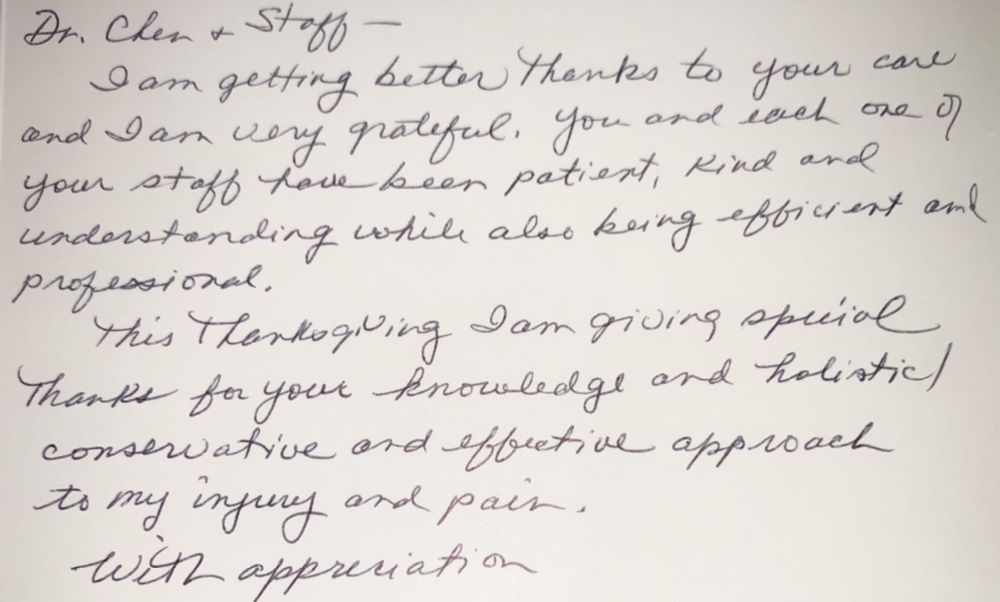 Dr. Chen + Staff —
I am getting better Thanks to your care
and I am very grateful. You and each one of
your staff have been patient, kind and
understanding while also being efficient and
professional.
This Thanksgiving I am giving special
Thanks for your knowledge and holistic/
conservative and effective approach
to my injury and pain.
With appreciation